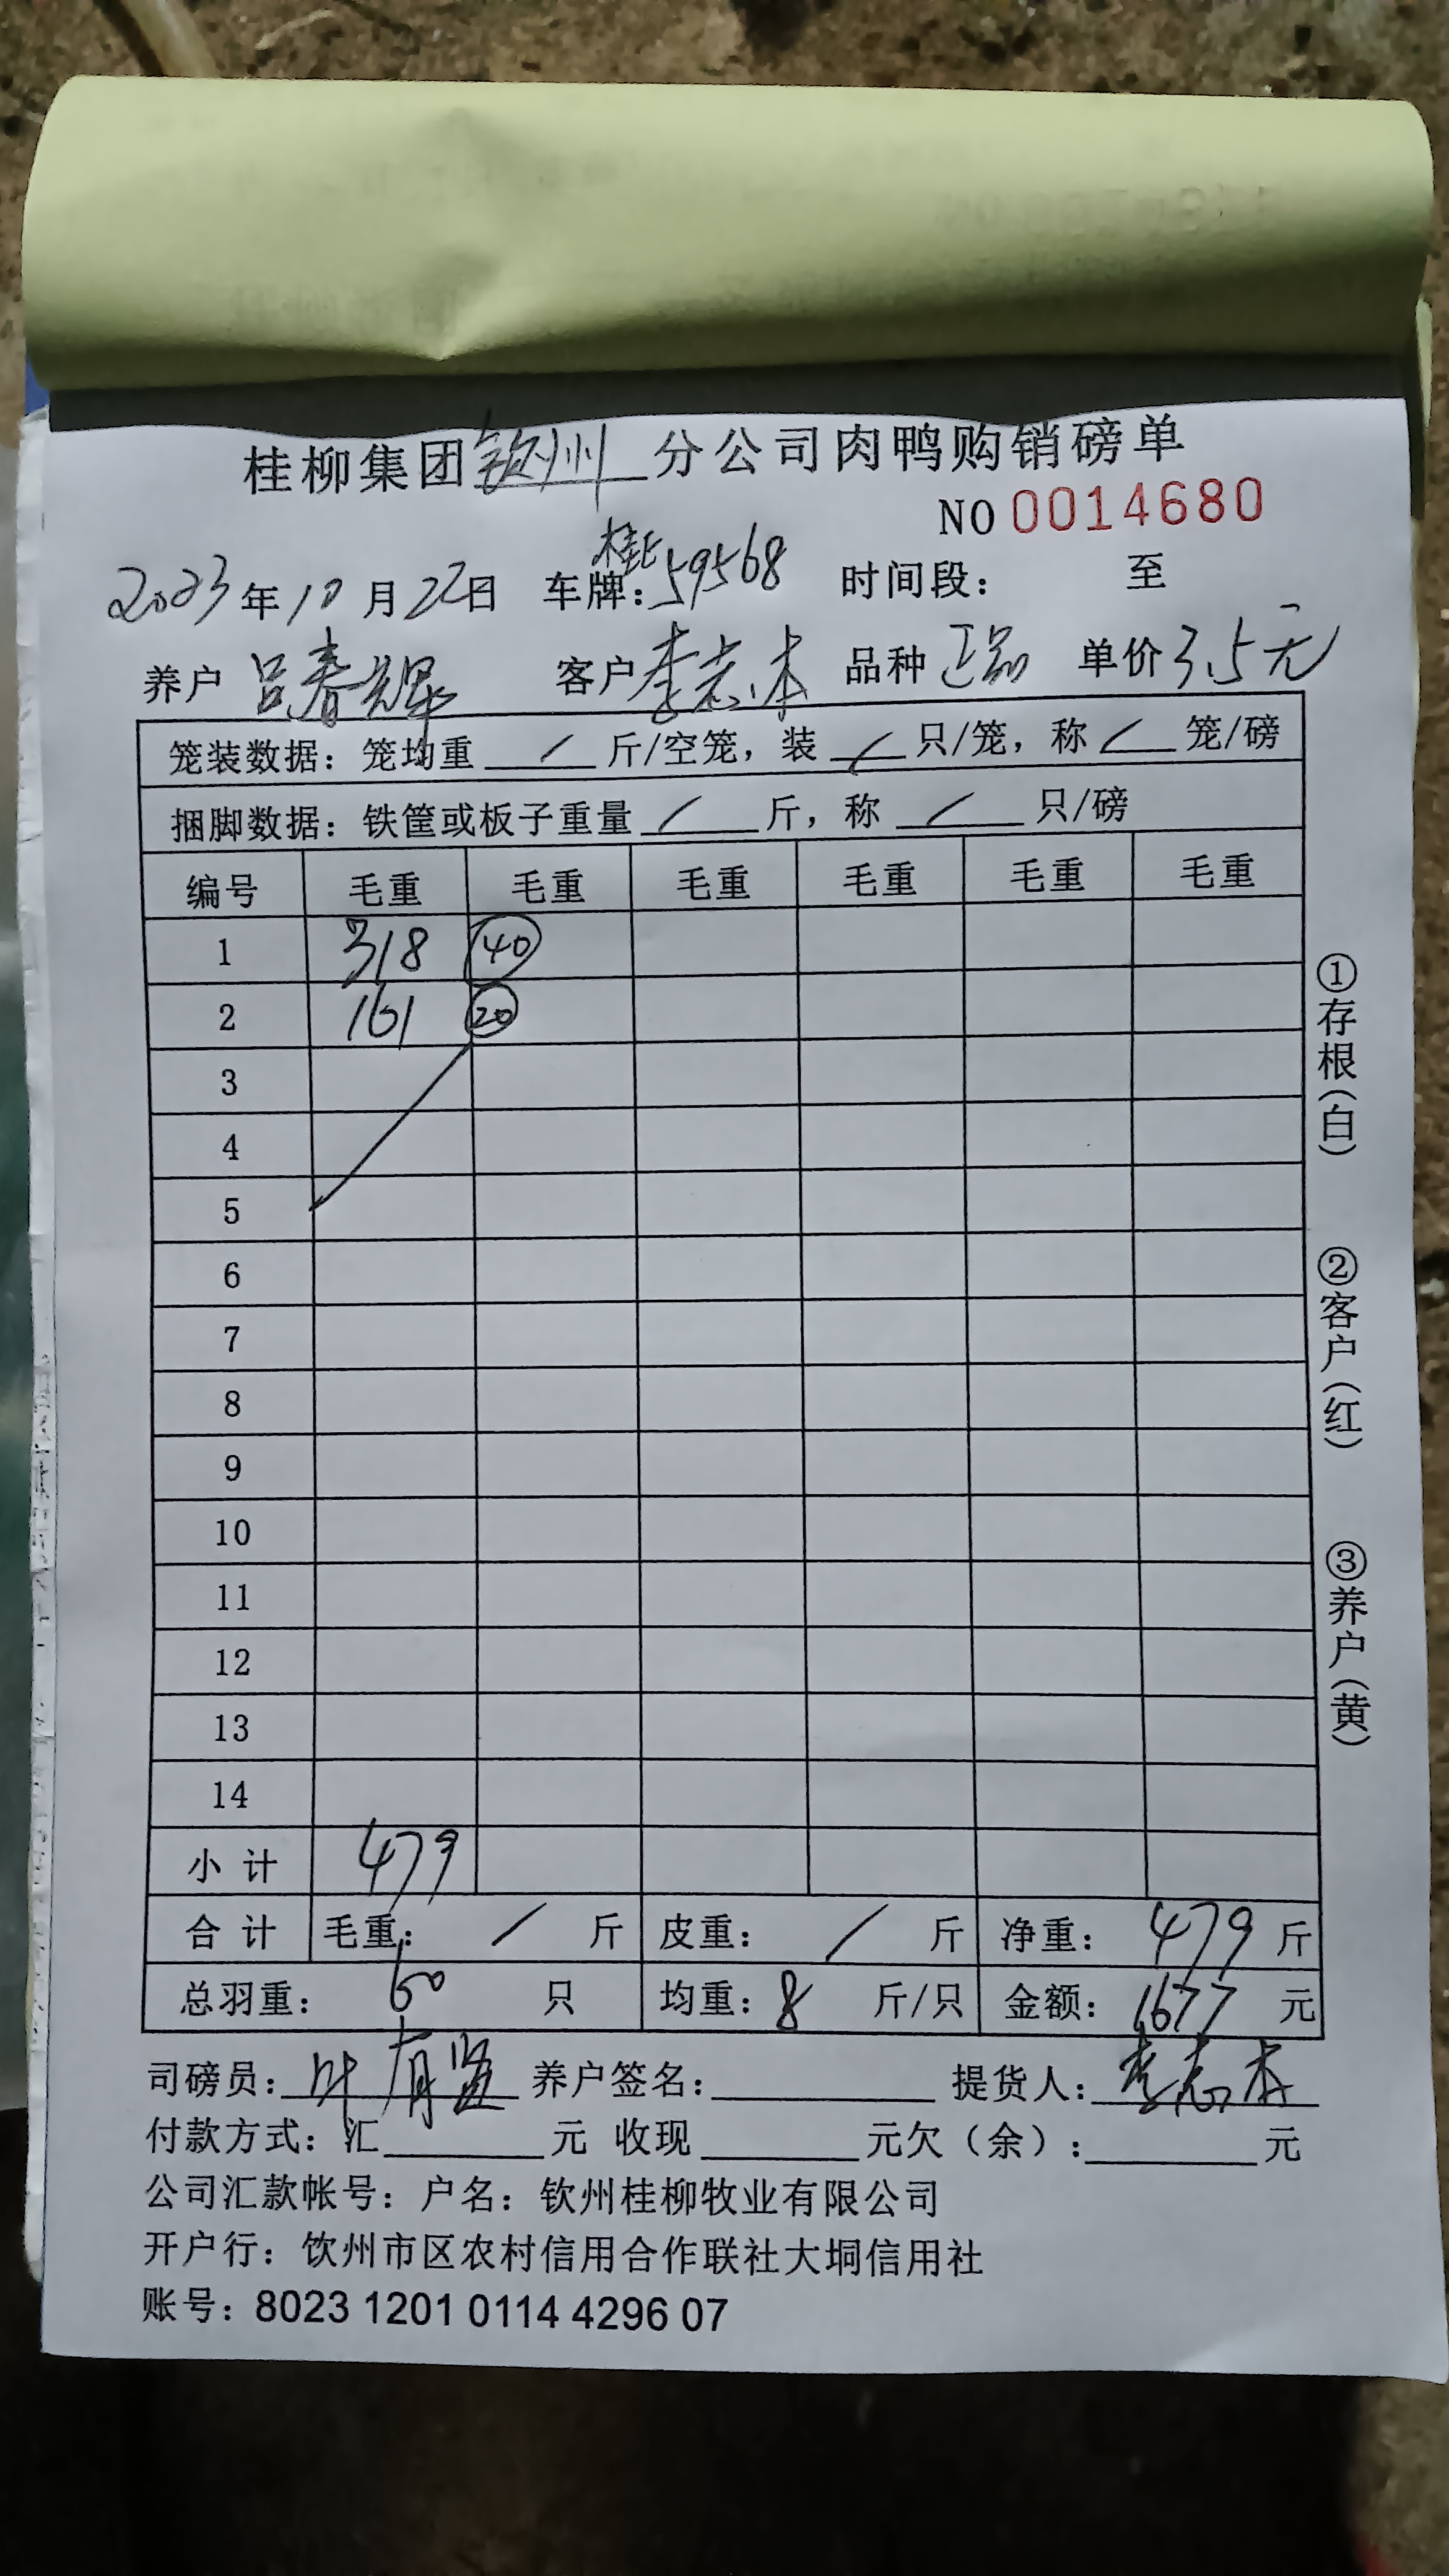 桂柳集团钦州分公司肉鸭购销磅单
NO 0014680
2023年10月22日 车牌:桂E59568 时间段: 至
养户 吕春辉 客户 李志本 品种 正品 单价 3.5元
笼装数据:笼均重 / 斤/空笼,装 / 只/笼,称 / 笼/磅
捆脚数据:铁筐或板子重量 / 斤,称 / 只/磅
编号 毛重 毛重 毛重 毛重 毛重 毛重
1 318 40
2 161 20
3
4
5
6
7
8
9
10
11
12
13
14
小计 479
合计 毛重: / 斤 皮重: / 斤 净重: 479 斤
总羽重: 60 只 均重: 8 斤/只 金额: 1677 元
司磅员: 叶 养户签名: 提货人: 李志本
付款方式:汇 元 收现 元欠(余): 元
公司汇款帐号:户名:钦州桂柳牧业有限公司
开户行:饮州市区农村信用合作联社大垌信用社
账号:8023 1201 0114 4296 07
①存根(白)
②客户(红)
③养户(黄)